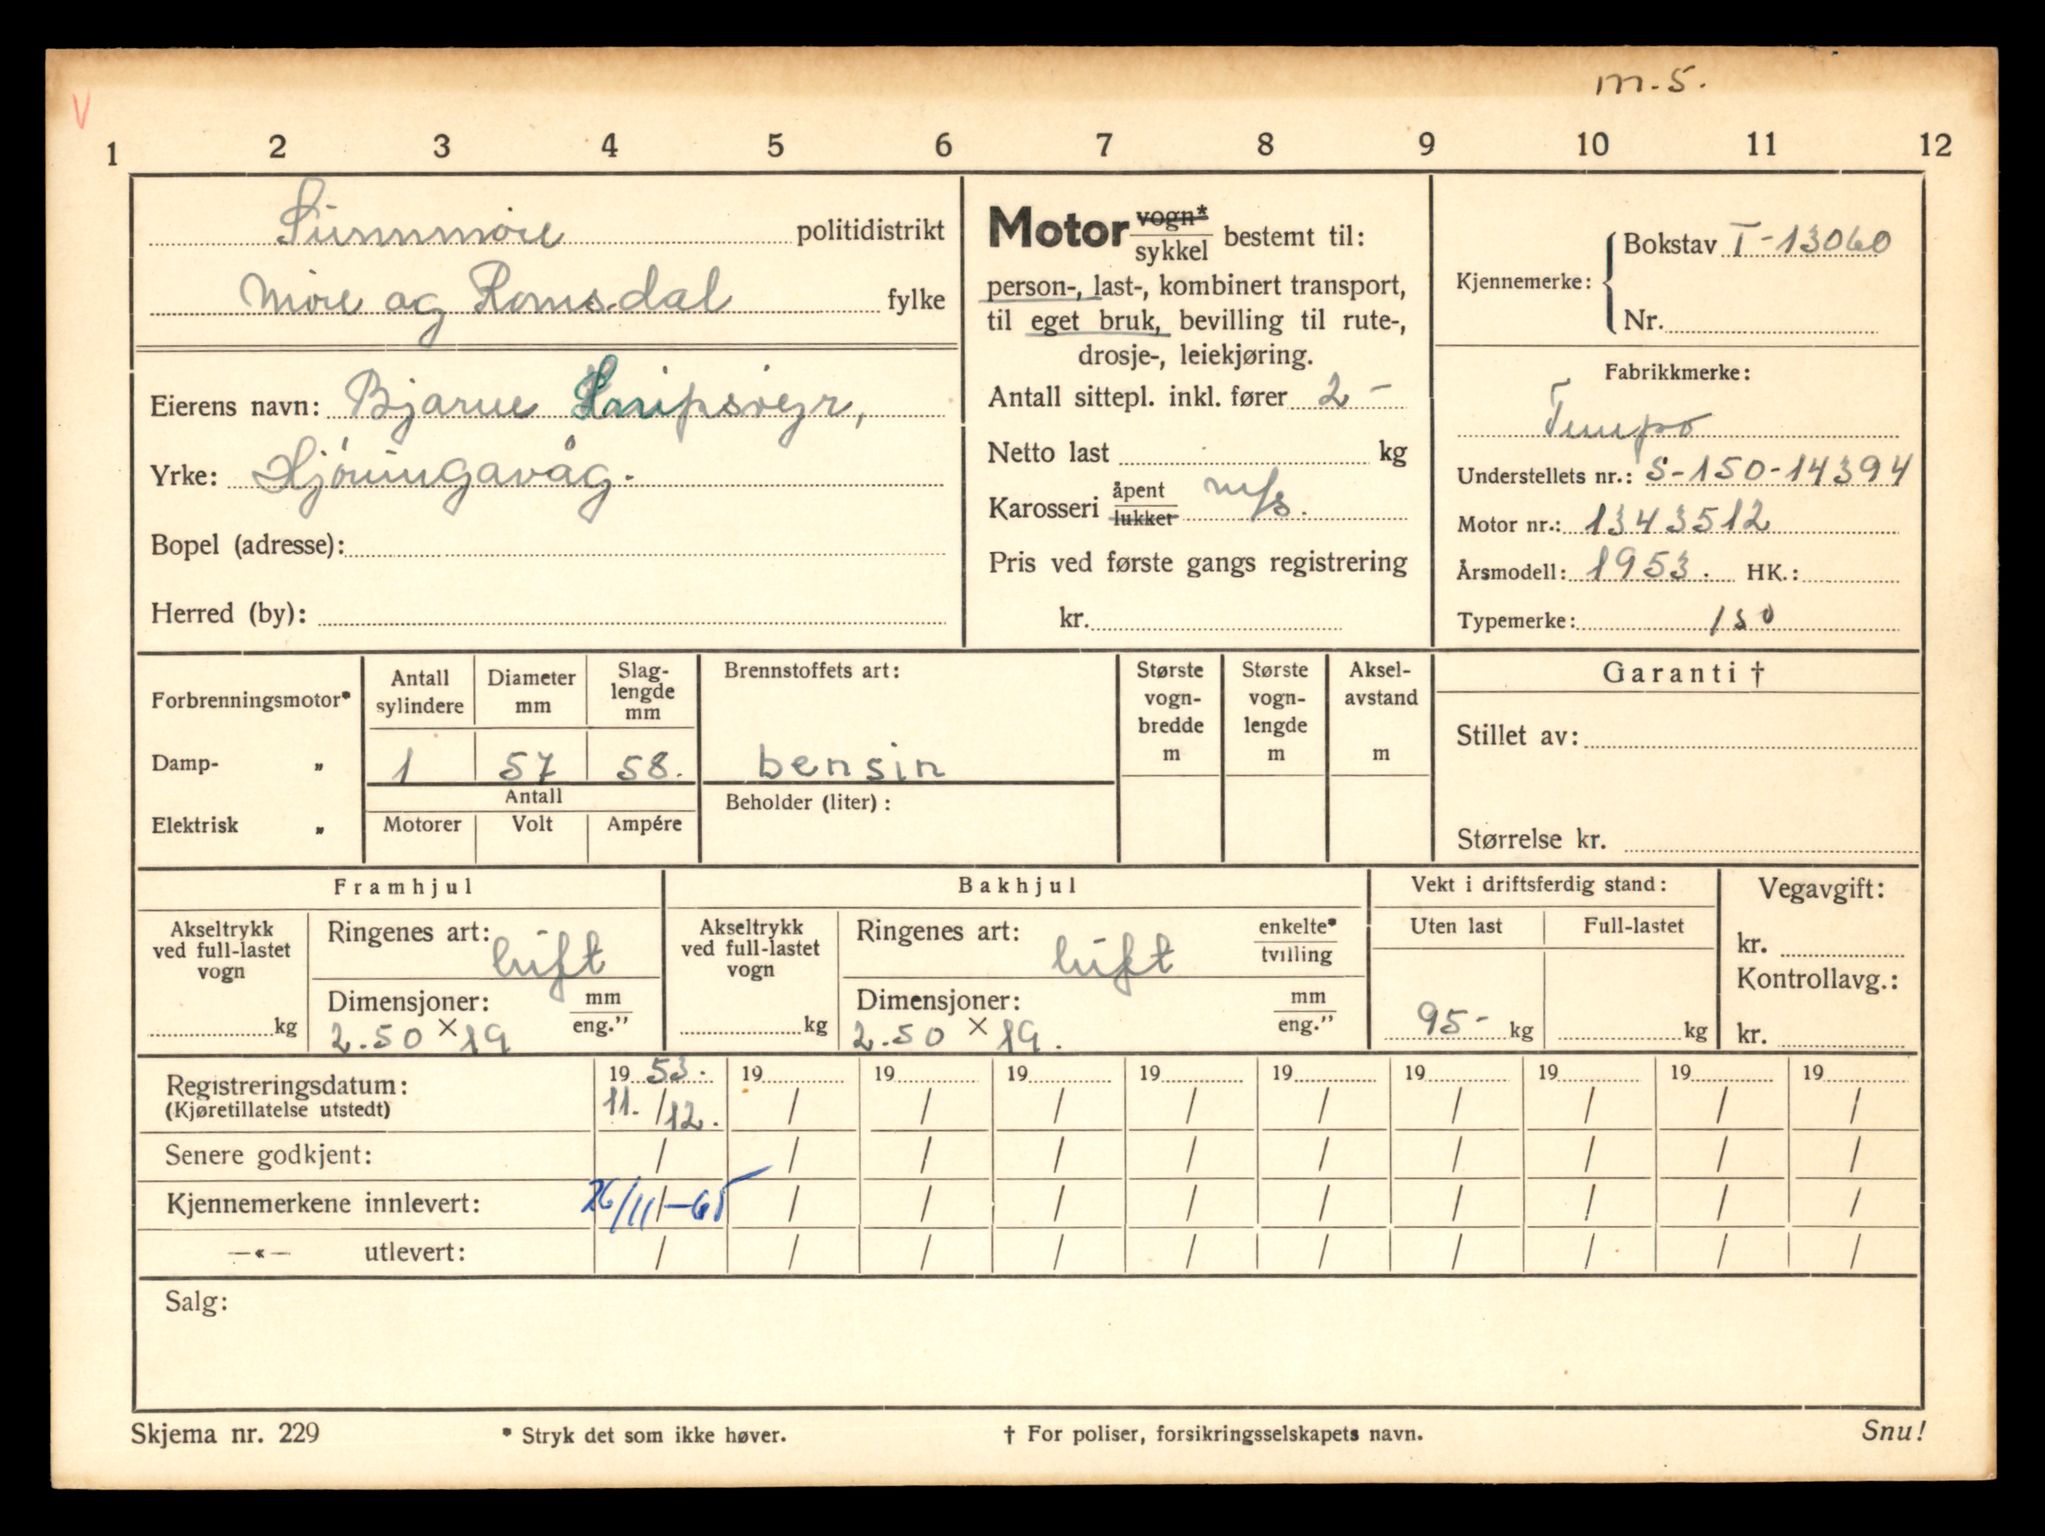 m.5.
V
1 2 3 4 5 6 7 8 9 10 11 12
Sunnmøre politidistrikt
Møre og Romsdal fylke
Eierens navn: Bjarne Snipsøyr,
Yrke: Hjørungavåg.
Bopel (adresse):
Herred (by):
Motor vogn* / sykkel bestemt til:
person-, last-, kombinert transport,
til eget bruk, bevilling til rute-,
drosje-, leiekjøring.
Antall sittepl. inkl. fører 2 -
Netto last kg
Karosseri åpent / lukket m/s.
Pris ved første gangs registrering
kr.
Kjennemerke: Bokstav T-13060
Nr.
Fabrikkmerke:
Tempo
Understellets nr.: S-150-14394
Motor nr.: 1343512
Årsmodell: 1953. HK.:
Typemerke: 150
Forbrenningsmotor*
Damp- „
Elektrisk „
Antall sylindere
Diameter mm
Slag-lengde mm
1 57 58.
Antall
Motorer Volt Ampére
Brennstoffets art:
bensin
Beholder (liter):
Største vogn-bredde m
Største vogn-lengde m
Aksel-avstand m
Garanti †
Stillet av:
Størrelse kr.
Framhjul
Akseltrykk ved full-lastet vogn
kg
Ringenes art: luft
Dimensjoner: mm / eng."
2.50 × 19
Bakhjul
Akseltrykk ved full-lastet vogn
kg
Ringenes art: luft enkelte* / tvilling
Dimensjoner: mm / eng."
2.50 × 19.
Vekt i driftsferdig stand:
Uten last Full-lastet
95- kg kg
Vegavgift:
kr.
Kontrollavg.:
kr.
Registreringsdatum: 19 53. 19 19 19 19 19 19 19 19 19
(Kjøretillatelse utstedt) 11. / 12. / / / / / / / / /
Senere godkjent: / / / / / / / / / /
Kjennemerkene innlevert: 26/11-65 / / / / / / / / /
—«— utlevert: / / / / / / / / / /
Salg:
Skjema nr. 229 * Stryk det som ikke høver. † For poliser, forsikringsselskapets navn. Snu!